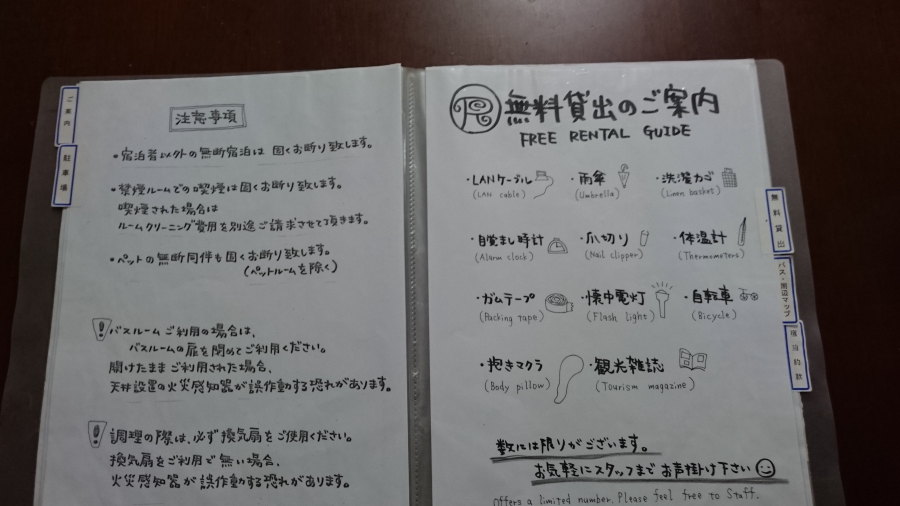 ご案内
駐車場
注意事項
・宿泊者以外の無断宿泊は固くお断り致します。
・禁煙ルームでの喫煙は固くお断り致します。
喫煙された場合は
ルームクリーニング費用を別途ご請求させて頂きます。
・ペットの無断同伴も固くお断り致します。
(ペットルームを除く)
バスルームご利用の場合は、
バスルームの扉を閉めてご利用ください。
開けたままご利用された場合、
天井設置の火災感知器が誤作動する恐れがあります。
調理の際は、必ず換気扇をご使用ください。
換気扇をご利用で無い場合、
火災感知器が誤作動する恐れがあります。
無料貸出のご案内
FREE RENTAL GUIDE
・LANケーブル ・雨傘 ・洗濯カゴ
(LAN cable) (Umbrella) (Linen basket)
・目覚まし時計 ・爪切り ・体温計
(Alarm clock) (Nail clipper) (Thermometers)
・ガムテープ ・懐中電灯 ・自転車
(Packing tape) (Flash light) (Bicycle)
・抱きマクラ ・観光雑誌
(Body pillow) (Tourism magazine)
数には限りがございます。
お気軽にスタッフまでお声掛け下さい
Offers a limited number. Please feel free to Staff.
無料貸出
バス・周辺マップ
宿泊約款